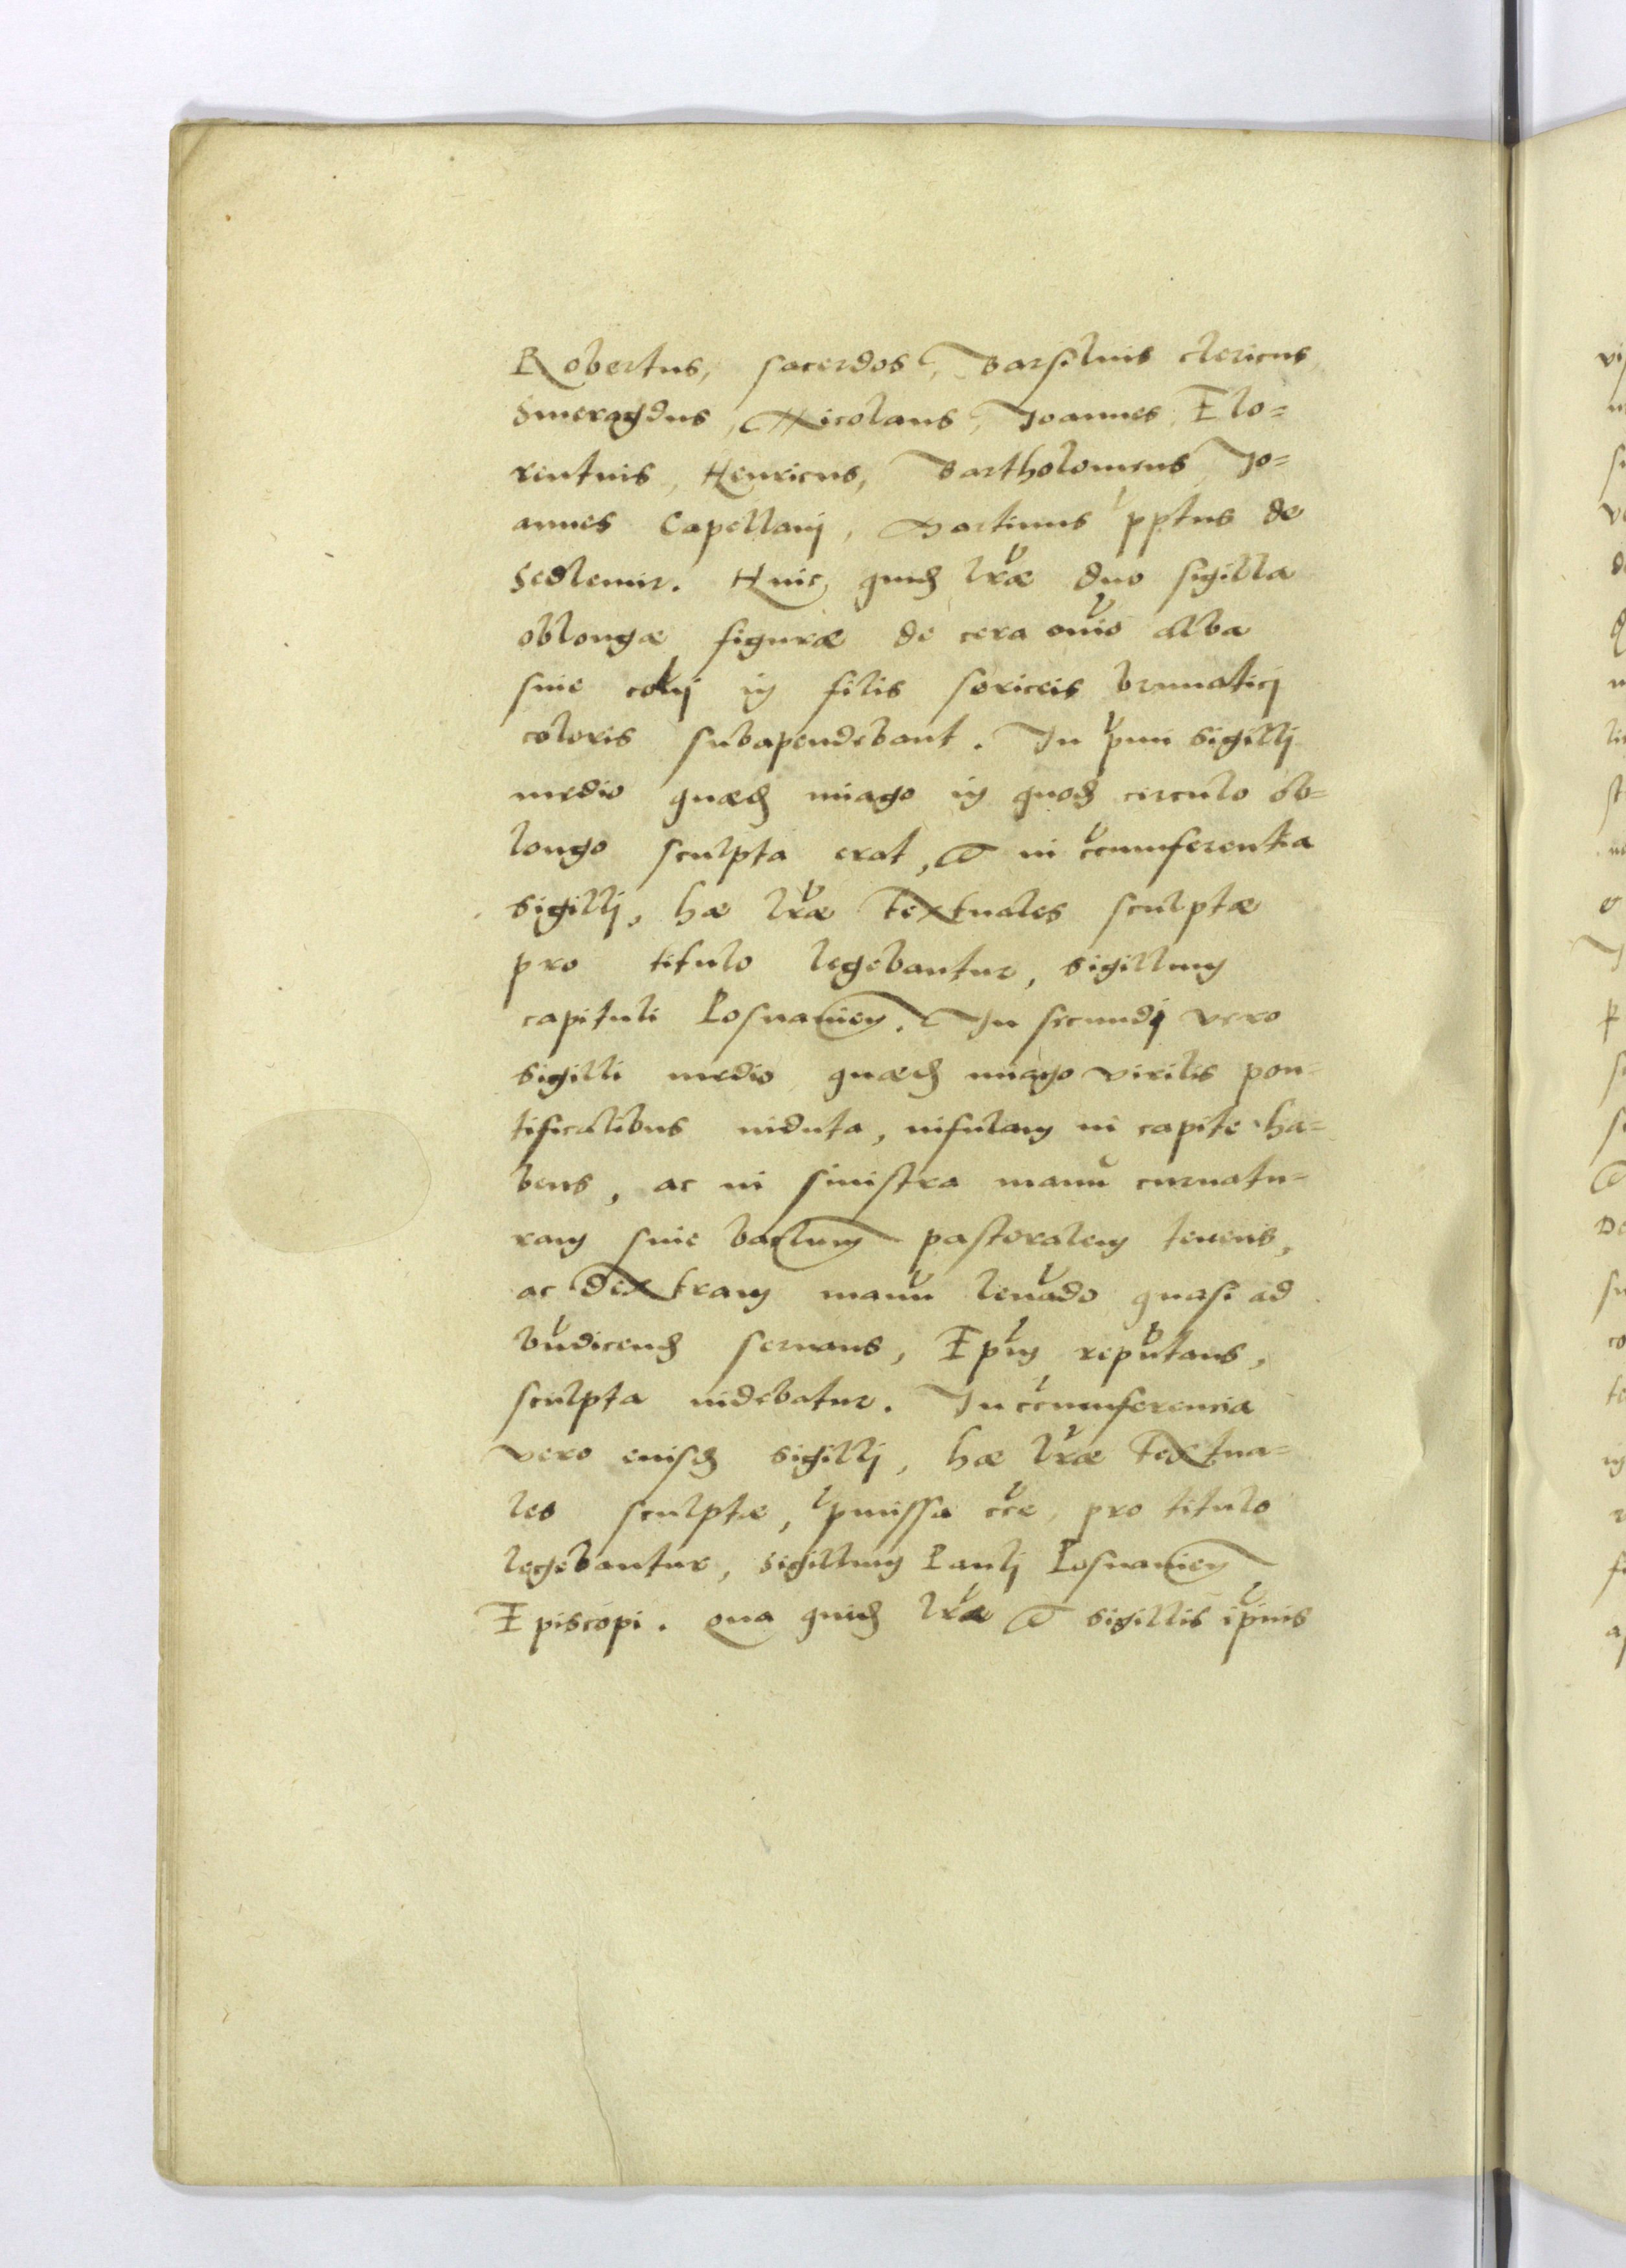 Robertus, sacerdos, Barsiluis clericus
Smeragdus, Nicolaus, Joannes, Flo=
rentius, Henricus, Bartholomeus Jo=
annes Capellanj, Martinus pptus de
Sedlemir. Huic quid lrae duo sigilla
oblongae figurae de cera onio alba
siue in filis sericeis brunaticj
coloris subapendebant. In pmi Sigillj
medio quaed imago in quod circulo ob=
longo sculpta erat, & in ccumferentia
sigillj, hae lrae textuales sculptae
pro titulo legebantur, sigillum
capituli Posnanien. In secundj vero
sigilli medio quaed imago virilis pon=
tificalibus induta, infulam in capite ha=
bens, ac in sinistra manu curuatu=
ram siue baclum pastoralem tenens,
ac dextram manu leuado quasi ad
bndicend seruans, Epum reputans,
sculpta uidebatur. In ccumferencia
vero euisd sigillj, hae lrae textua=
les sculptae, pmissa cce, pro titulo
legebantur, sigillum Paulj Posnanien
Episcopi. Qua quid lra & sigillis ipius